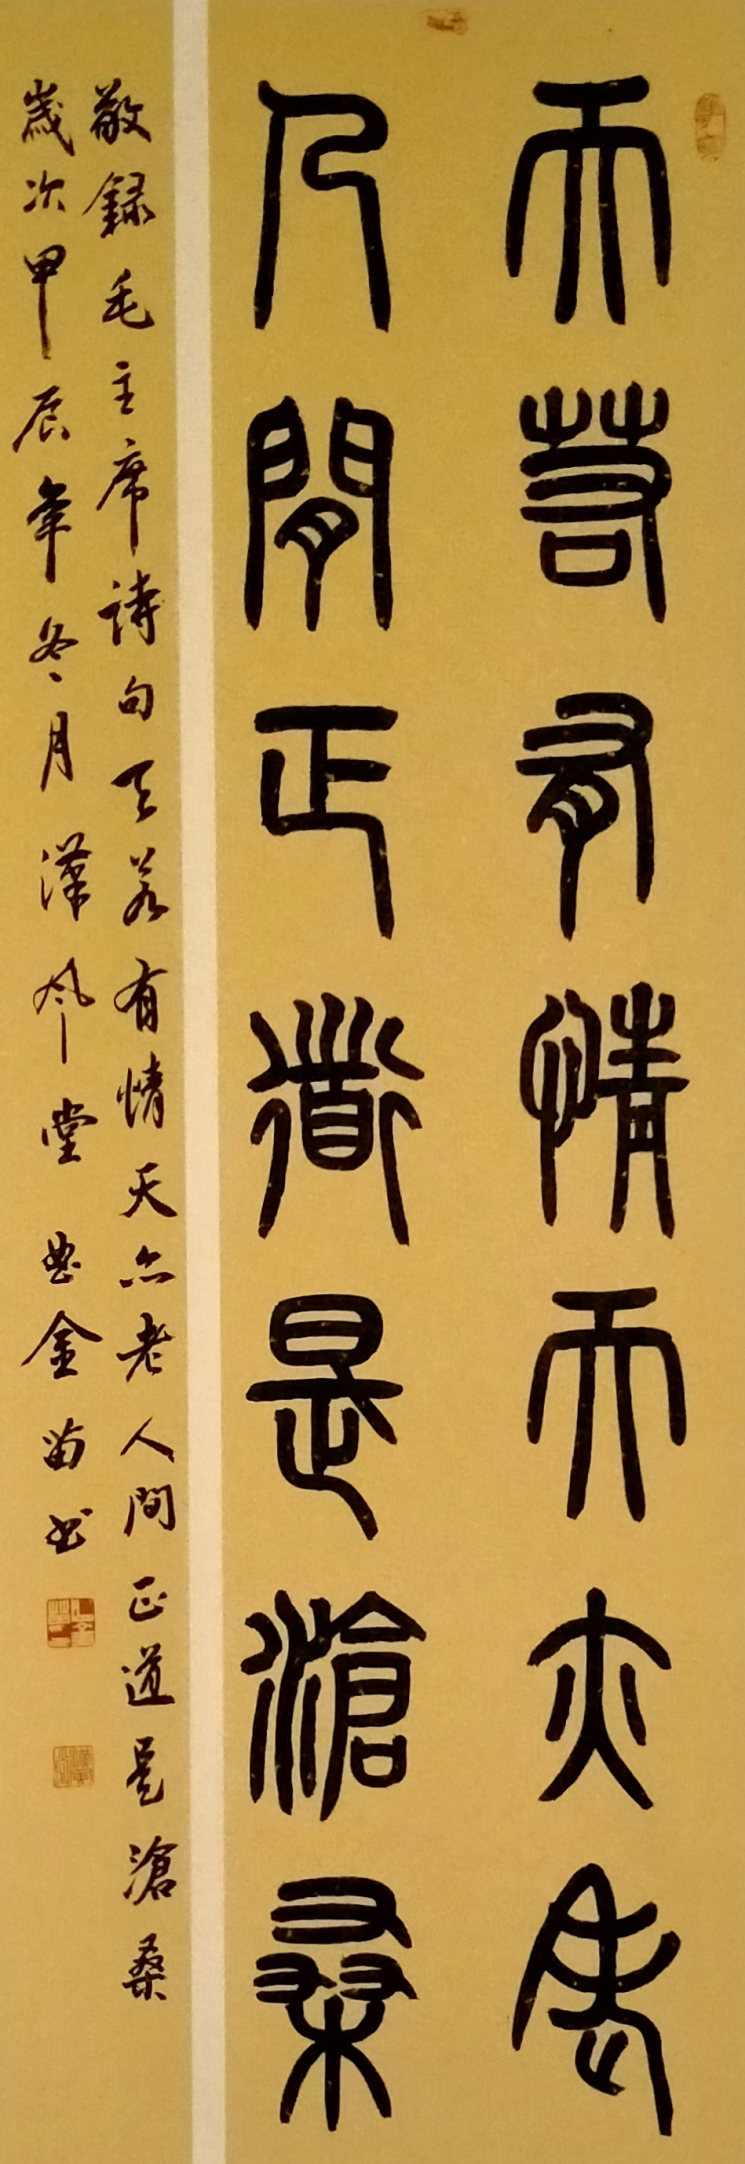 天若有情天亦老
人閒正道是滄桑
敬録毛主席詩句天若有情天亦老人间正道是滄桑
歲次甲辰年冬月漢风堂曲金苗书